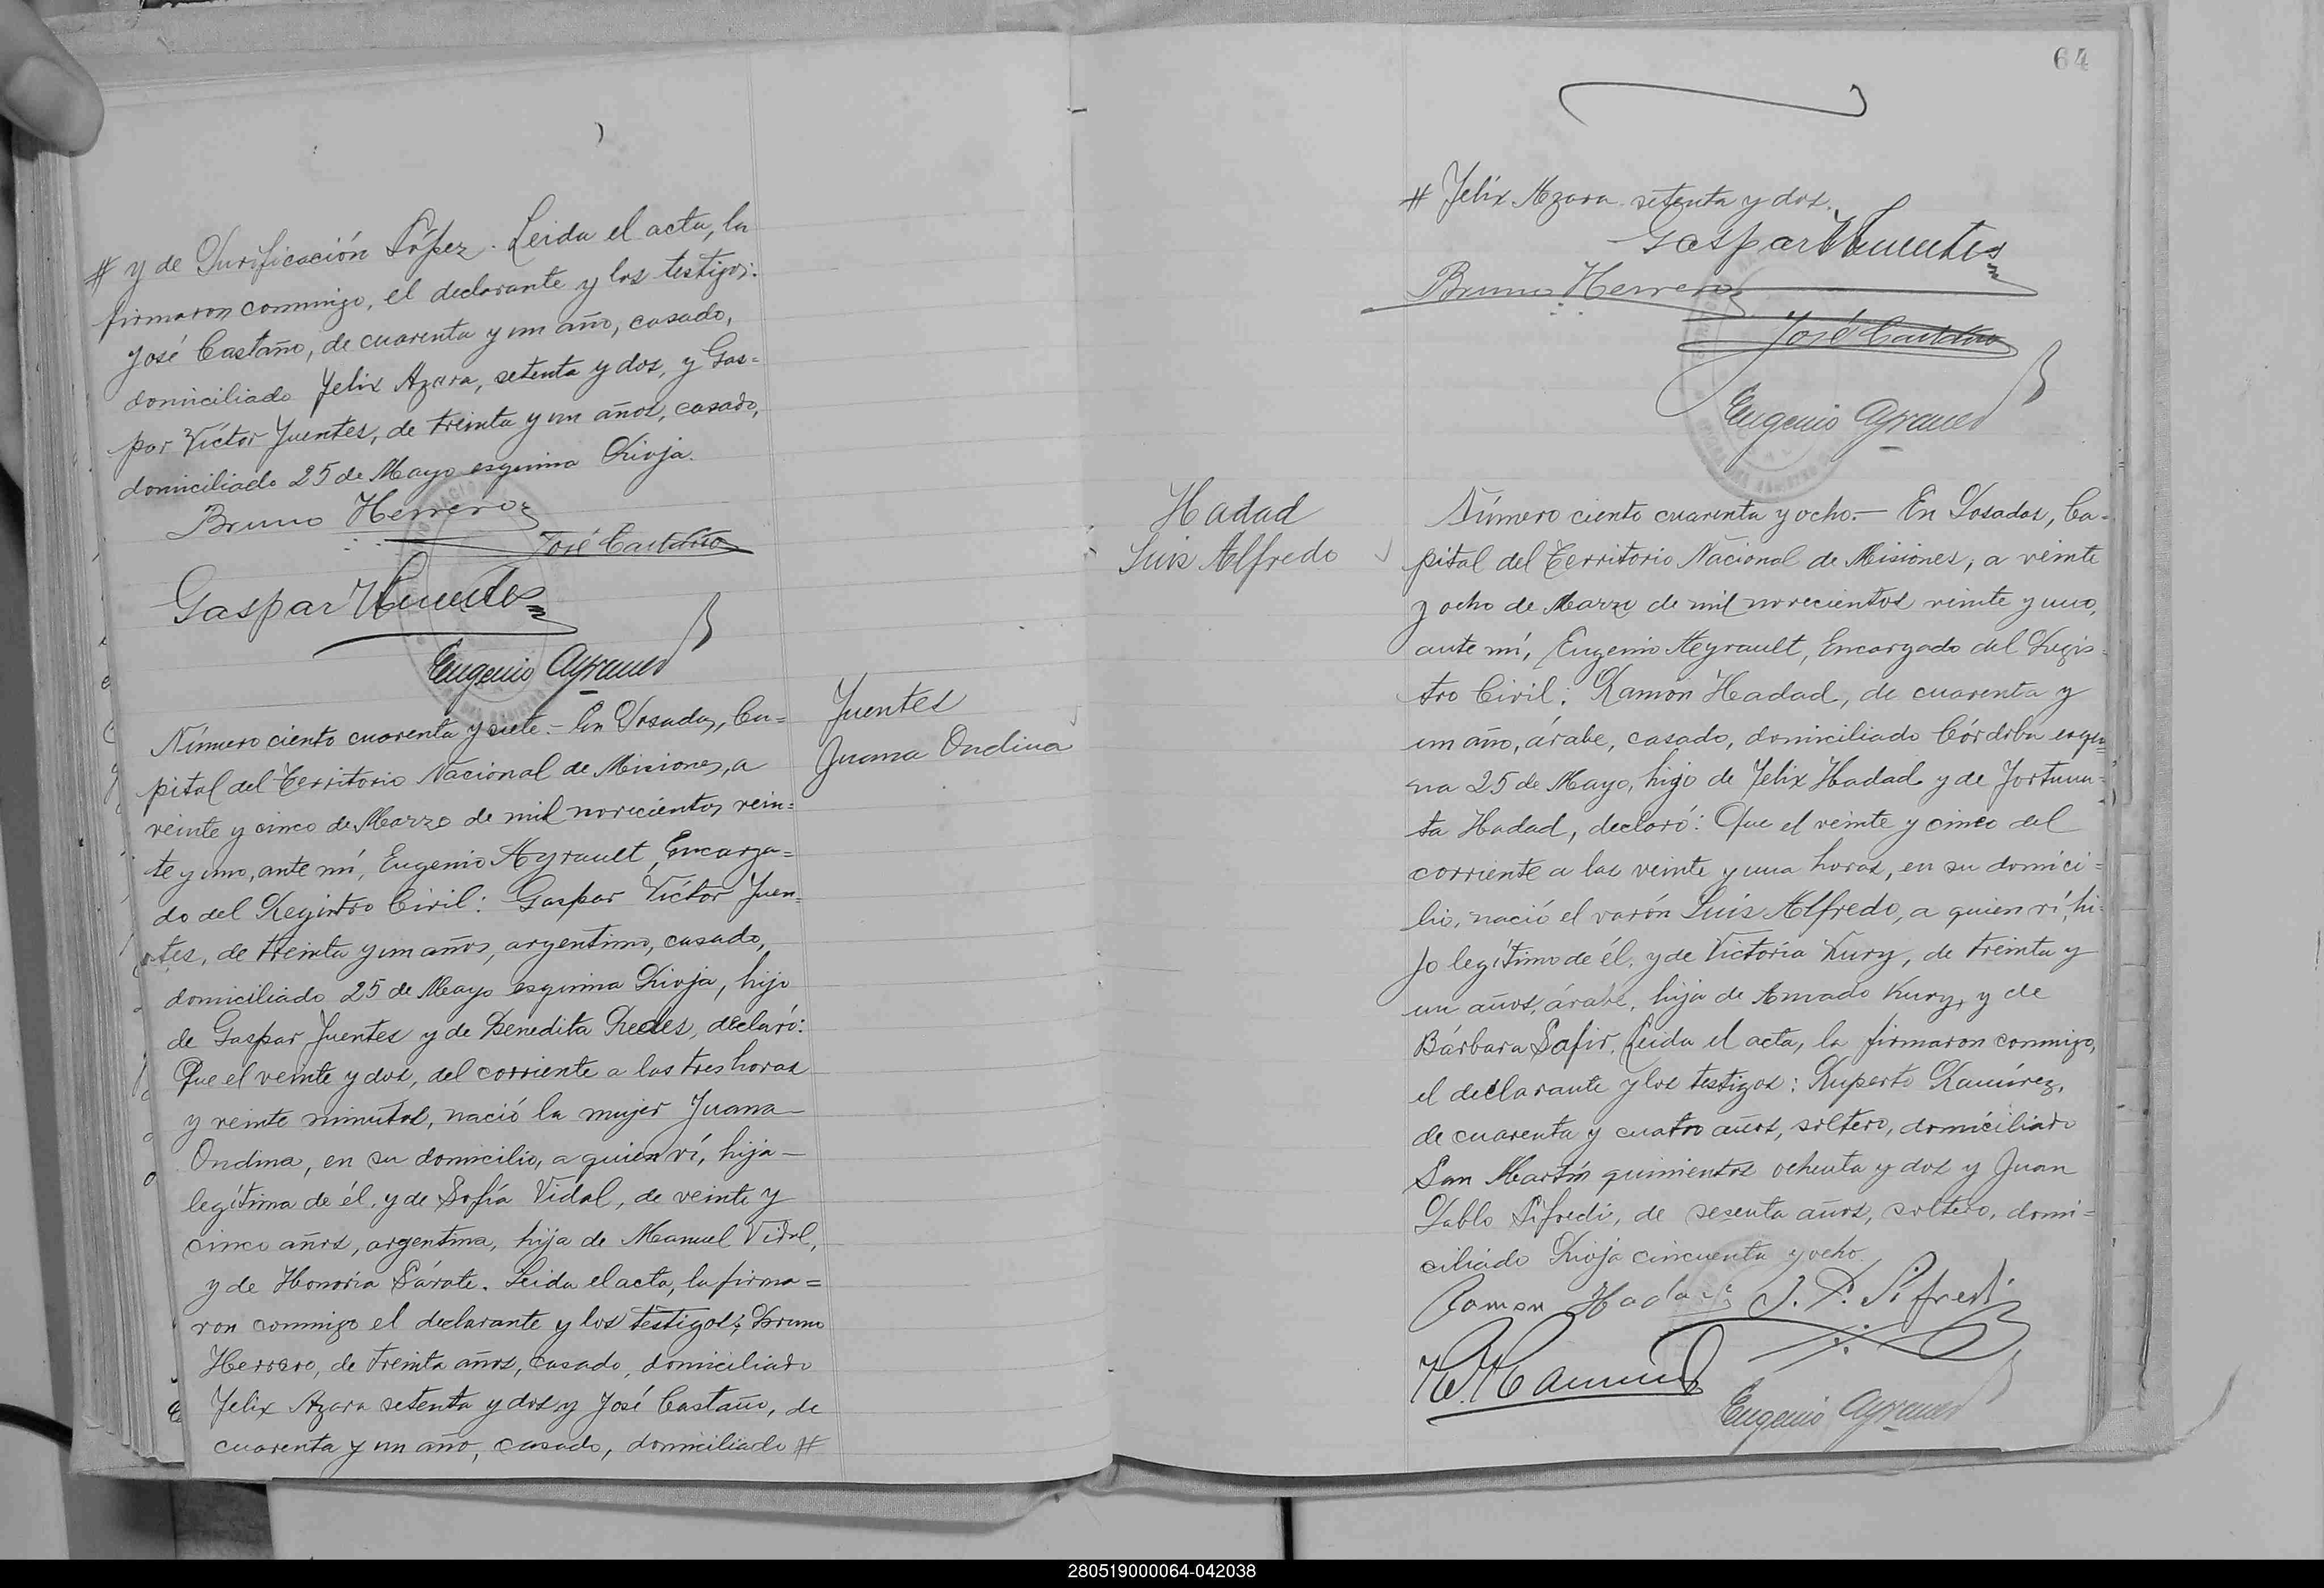 # y de Purificación López. Leida el acta, la
firmaron conmigo, el declarante y los testigos:
José Castaño, de cuarenta y un año, casado,
domiciliado Felix Azara, setenta y dos, y Gas=
par Víctor Fuentes, de treinta y un años, casado,
domiciliado 25 de Mayo esquina Rioja.
Bruno Herrero
José Castaño
Gaspar V Fuentes
Eugenio Ayrault
Número ciento cuarenta y siete.- En Posadas, Ca=
pital del Territorio Nacional de Misiones, a
veinte y cinco de Marzo de mil novecientos vein=
te y uno, ante mí, Eugenio Ayrault, Encarga=
do del Registro Civil: Gaspar Víctor Fuen=
tes, de treinta y un años, argentino, casado,
domiciliado 25 de Mayo esquina Rioja, hijo
de Gaspar Fuentes y de Benedita Redes, declaró:
Que el veinte y dos, del corriente a las tres horas
y veinte minutos, nació la mujer Juana
Ondina, en su domicilio, a quien ví, hija
legítima de él, y de Sofía Vidal, de veinte y
cinco años, argentina, hija de Manuel Vidal,
y de Honoria Sárate. Leida el acta, la firma=
ron conmigo el declarante y los testigos; Bruno
Herrero, de treinta años, casado, domiciliado
Felix Azara setenta y dos y José Castaño, de
cuarenta y un año, casado, domiciliado #
Fuentes
Juana Ondina
64
# Felix Azara setenta y dos.
Gaspar V Fuentes
Bruno Herrero
José Castaño
Eugenio Ayrault
Hadad
Luis Alfredo
Número ciento cuarenta y ocho.- En Posadas, Ca-
pital del Territorio Nacional de Misiones, a veinte
y ocho de Marzo de mil novecientos veinte y uno,
ante mí, Eugenio Ayrault, Encargado del Regis-
tro Civil: Ramon Hadad, de cuarenta y
un año, árabe, casado, domiciliado Córdoba esqui=
na 25 de Mayo, hijo de Felix Hadad y de Fortuna=
ta Hadad, declaró: Que el veinte y cinco del
corriente a las veinte y una horas, en su domici=
lio, nació el varón Luis Alfredo, a quien ví, hi-
jo legítimo de él, y de Victoria Kury, de treinta y
un años, árabe, hija de Amado Kury, y de
Bárbara Safir. Leida el acta, la firmaron conmigo,
el declarante y los testigos: Ruperto Ramírez,
de cuarenta y cuatro años, soltero, domiciliado
San Martín quinientos ochenta y dos y Juan
Pablo Sifredi, de sesenta años, soltero, domi=
ciliado Rioja cincuenta y ocho.
Ramon Hadad J. P. Sifredi
Eugenio Ayrault
280519000064-042038